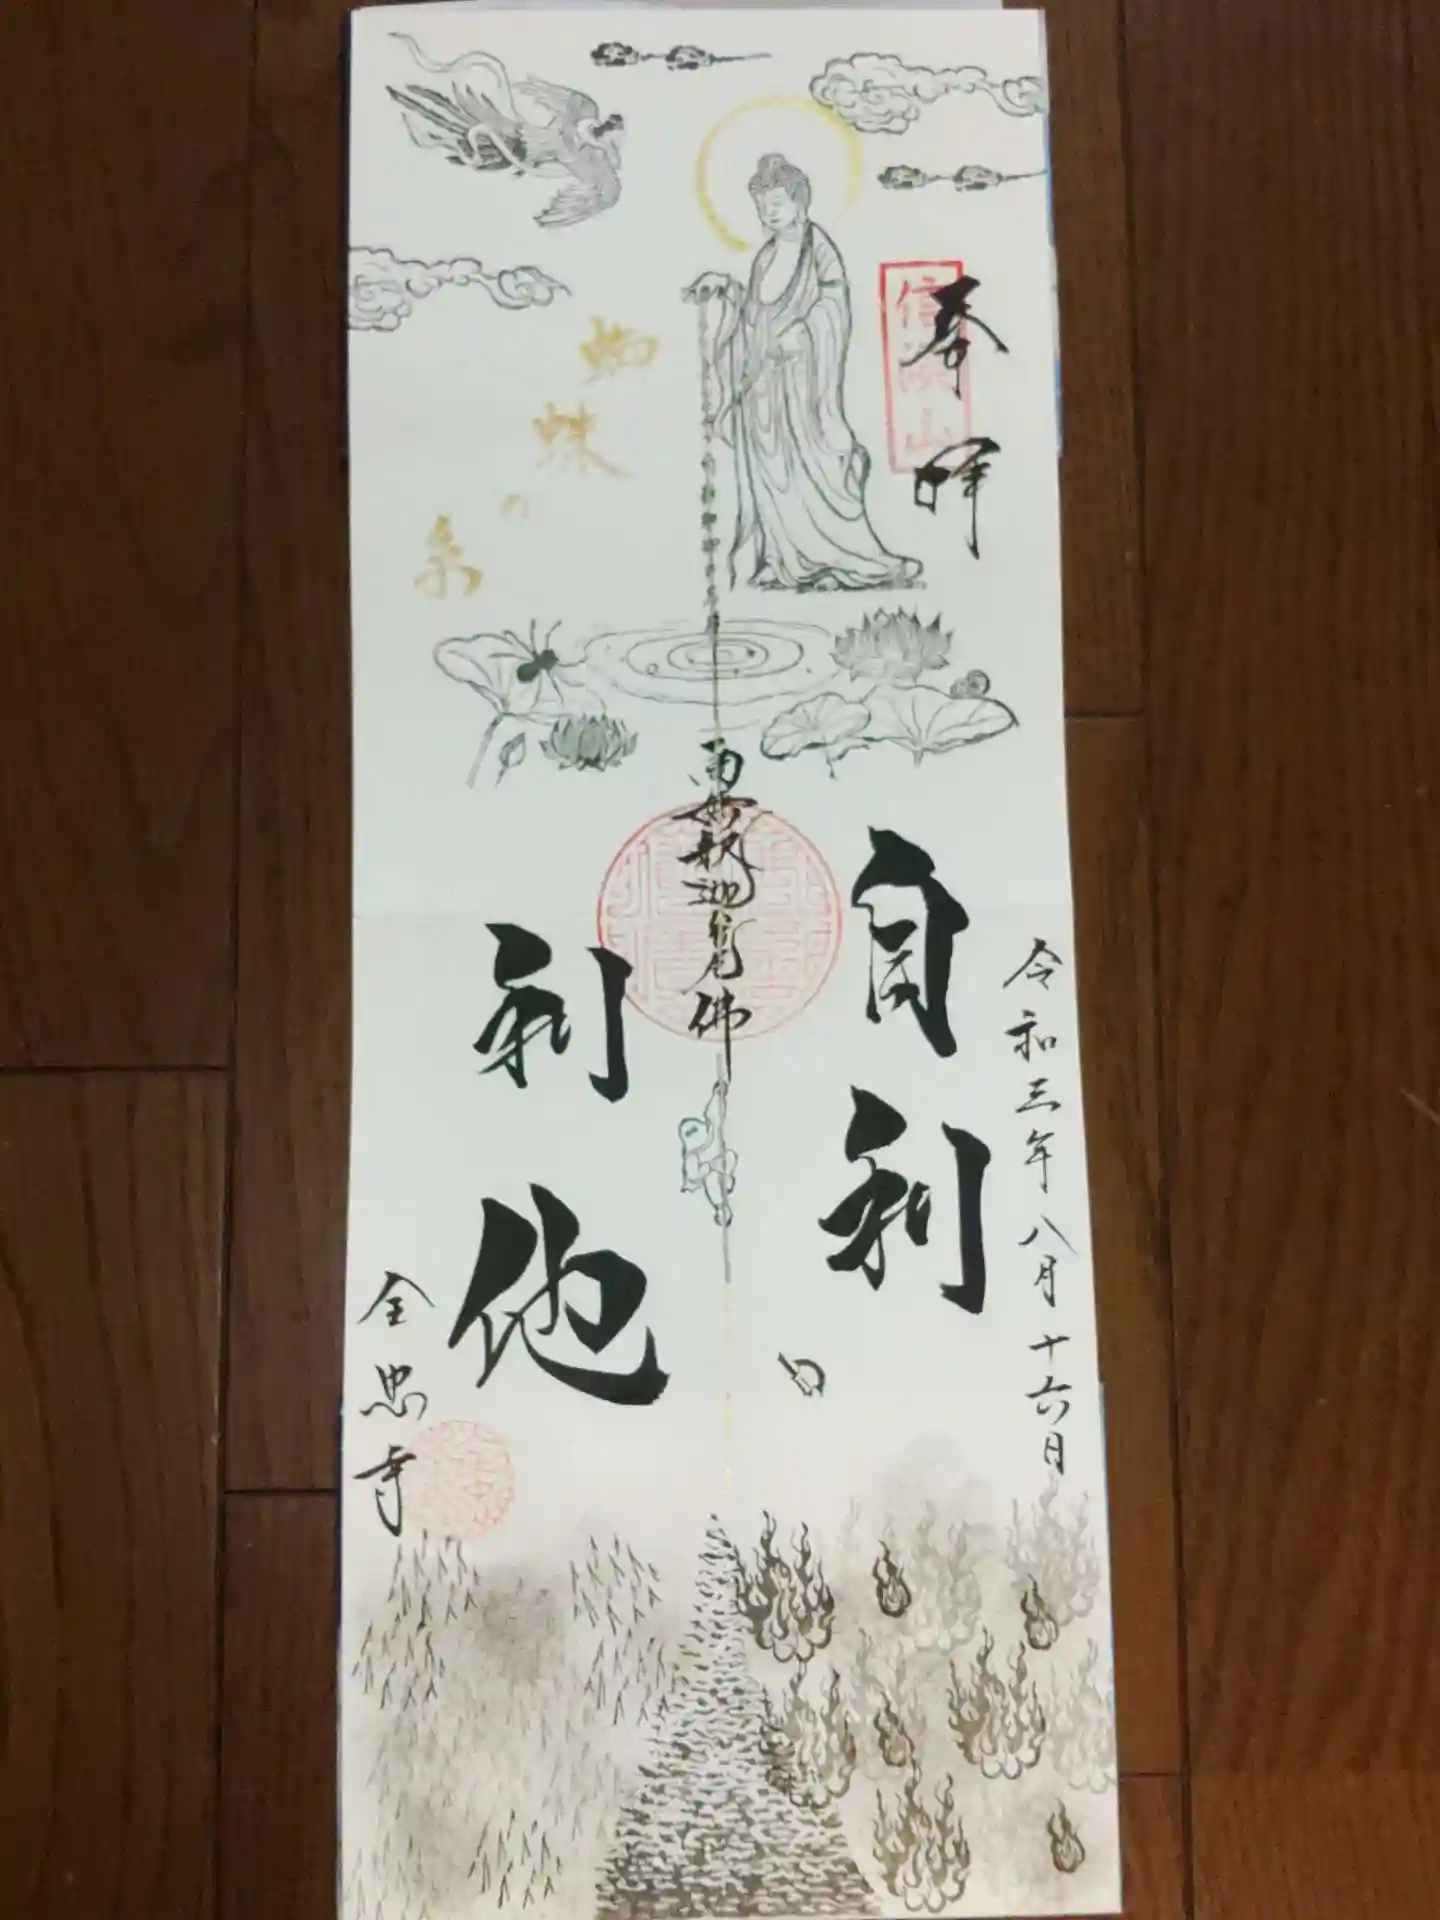 奉拝
信濃山
令和三年八月十六日
自利
南無釈迦牟尼佛
利他
蜘蛛の糸
全忠寺